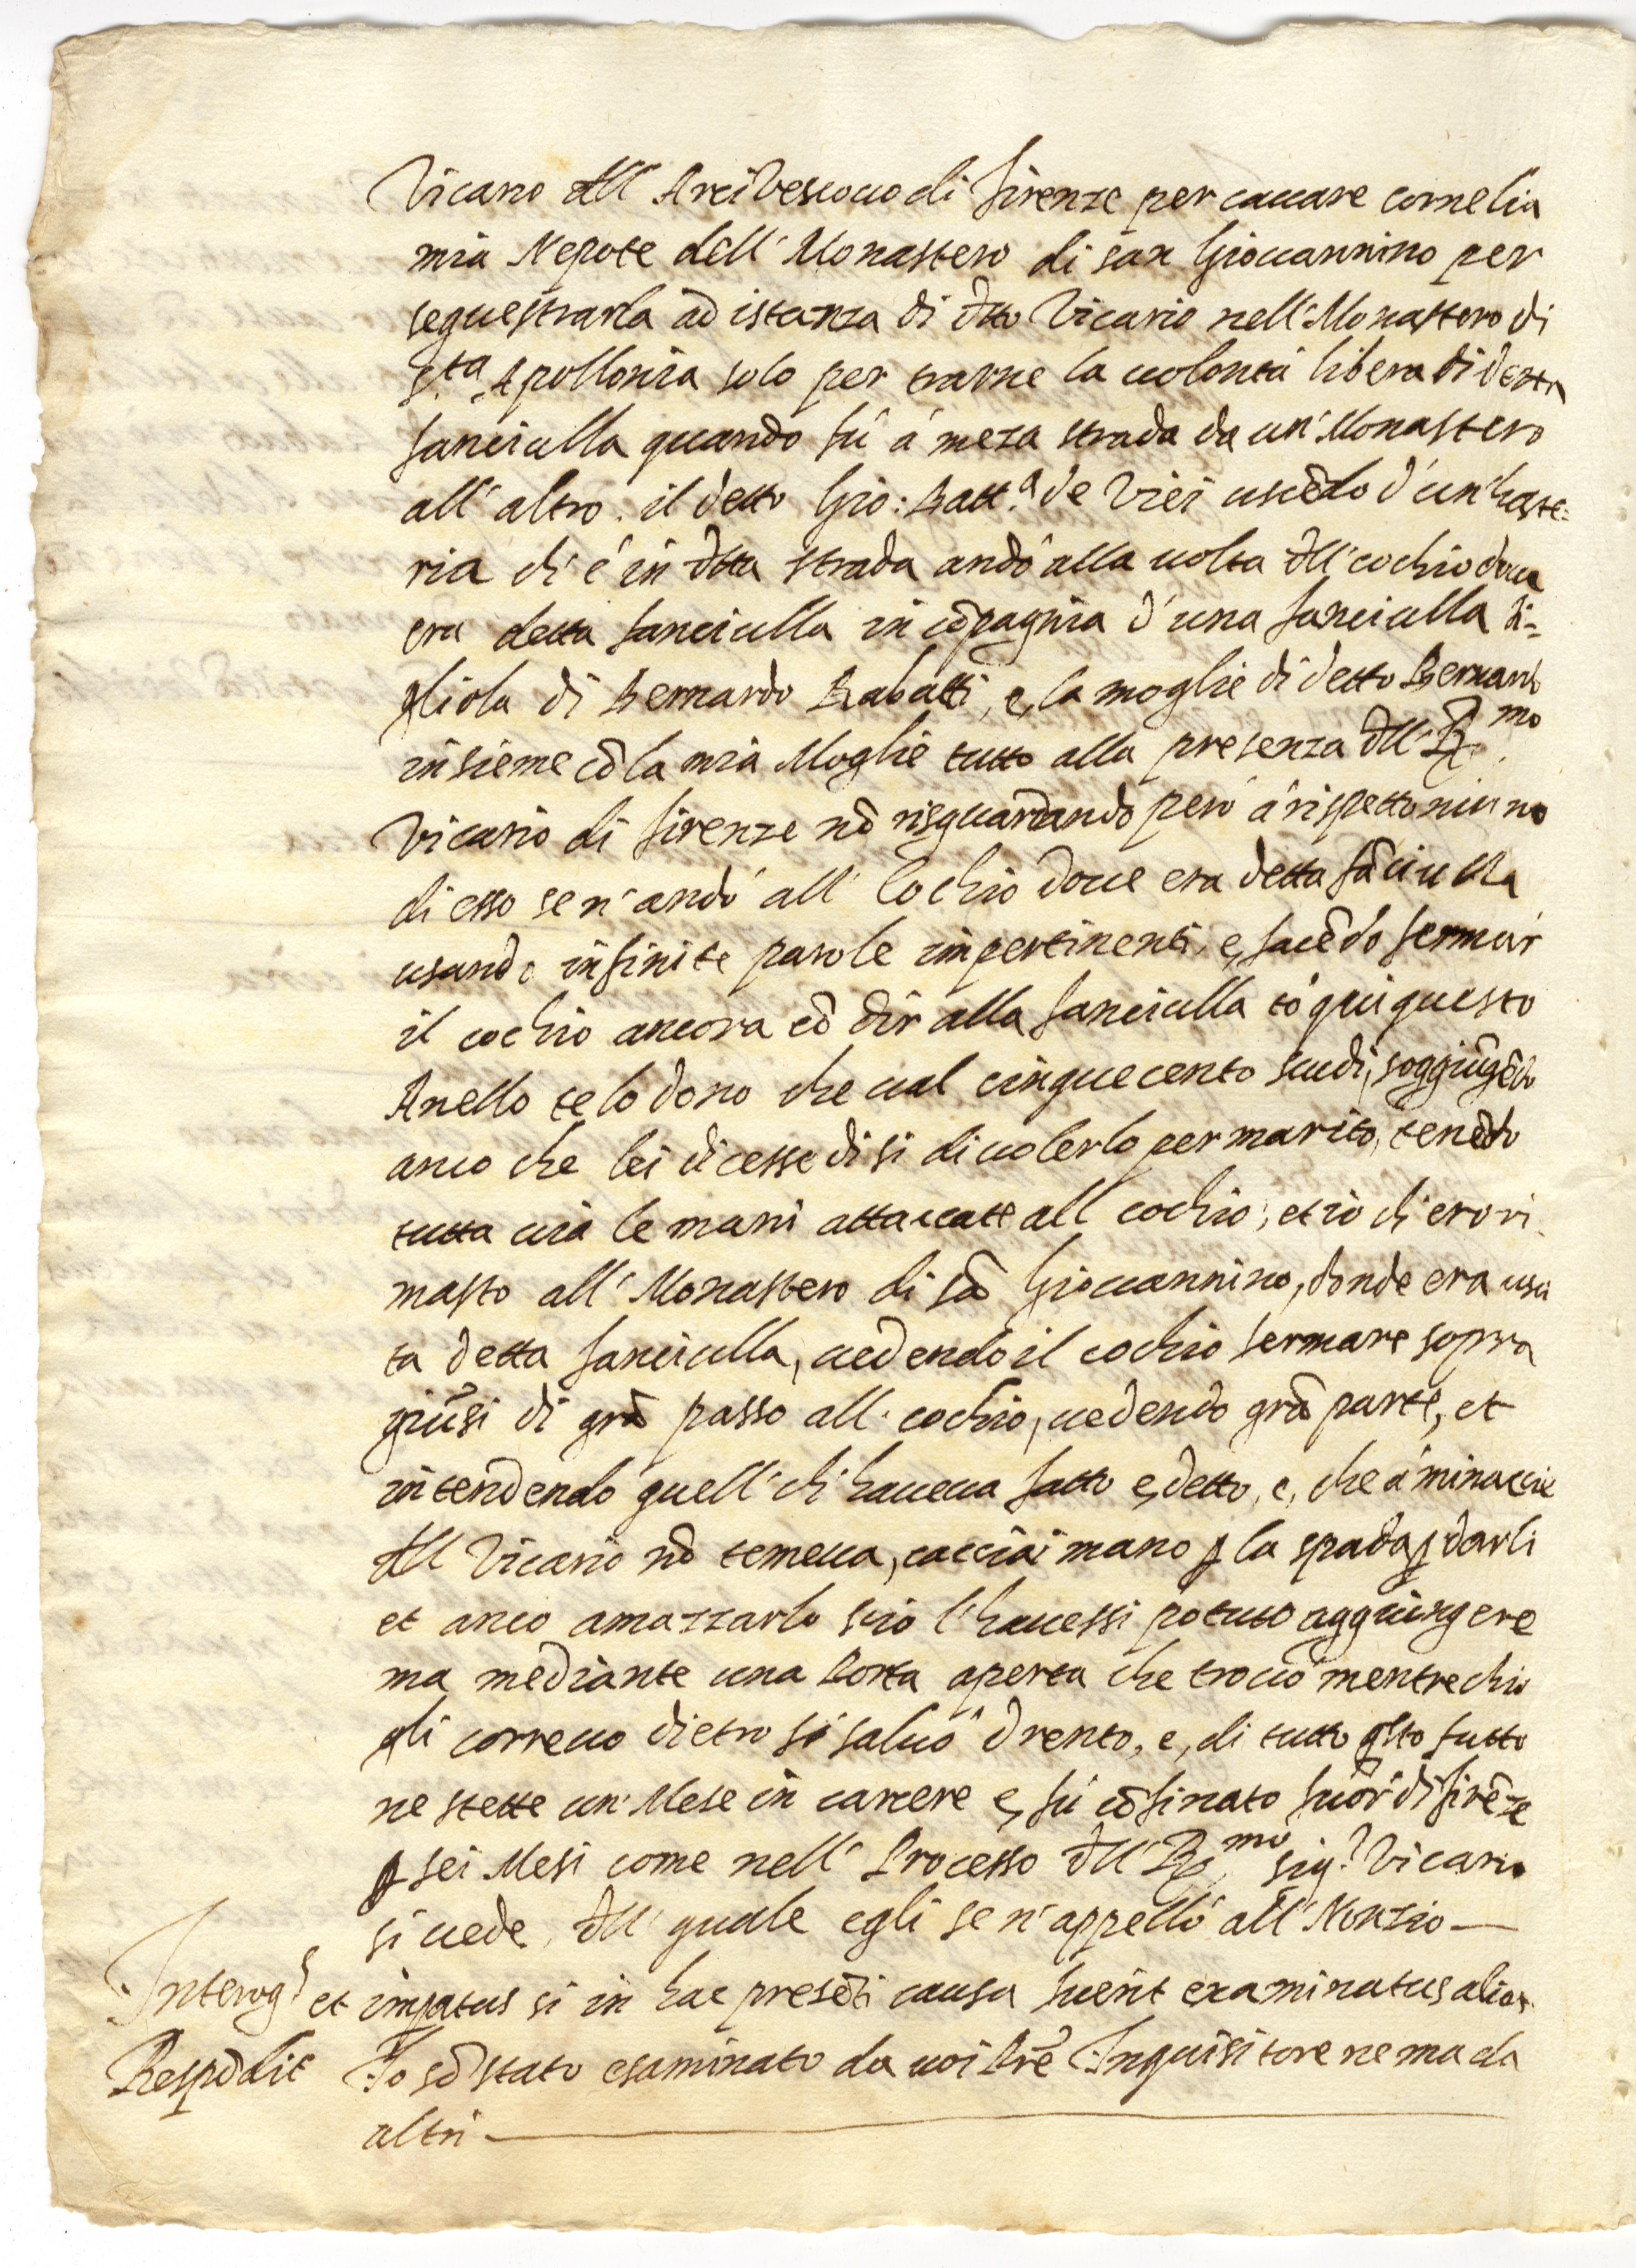 Vicario dll' Arcivescouo di firenze per cauare cornelia
mia Nepote dell' Monastero di san Giouannino per
sequestrarla ad istanza di dtto Vicario nell' Monastero di
S.ta Apollonia solo per trarne la uolontà libera di detta
fanciulla quando fù à meza strada da un' Monastero
all' altro. il detto Gio: Batt.a de Vieri uscēdo d'un' hoste=
ria ch' è in dtta strada andò alla uolta dll' cochio doue
era detta fanciulla in cōpagnia d'una fanciulla fi=
gliola di Bernardo Rabatti, e, la moglie di detto Bernardo
insieme cō la mia Moglie tutto alla presenza dll' R.mo
Vicario di firenze nō risguardando però à rispetto niuno
di esso se n' andò all' Cochio doue era detta fāciulla
usando infinite parole impertinenti, e, facēdo fermar
il cochio ancora cō dir alla fanciulla tò qui questo
Anello te lo dono che ual cinquecento scudi, soggiūgēdo
anco che lei dicesse di si di uolerlo per marito, tenēdo
tutta uia le mani attaccate all cochio, et iò ch' ero ri
masto all' Monastero di sā Giouannino, donde era usci
ta detta fanciulla, uedendo il cochio fermare sopra
giūsi di grā passo all cochio, uedendo grā parte, et
intendendo quell' ch' haueua fatto e, detto, e, che à minaccie
dll Vicario nō temeua, cacciai mano ꝑ la spada ꝑ darli
et anco amazzarlo s'iò l'hauessi potuto aggiungere
ma mediante una Porta aperta che trouò mentre ch'io
gli correuo dietro si saluò drento, e, di tutto qsto fatto
ne stette un' Mese in carcere e, fù cōfinato fuor di firēze
ꝑ sei Mesi come nell' Processo dll' R.mo sig.r Vicario
si uede, dll' quale egli se n' appellò all' Nonzio —
Interog.s et impatus si in hac presēti causa fuerit examinatus alias
Respōdit Io sō stato esaminato da uoi Prē Inquisitore ne ma da
altri —